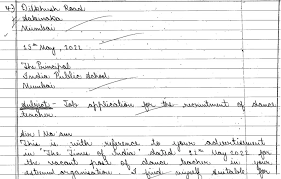 4) Dilkhush Road
Mumbai
15th May, 2022
The Principal
India Public School
Mumbai
Subject - Job application for the recruitment of dance
teacher.
Sir / Ma'am
This is with reference to your advertisement
in "The Times of India" dated May 2022 for
the vacant post of dance teacher in your
esteemed organisation. I find myself suitable for